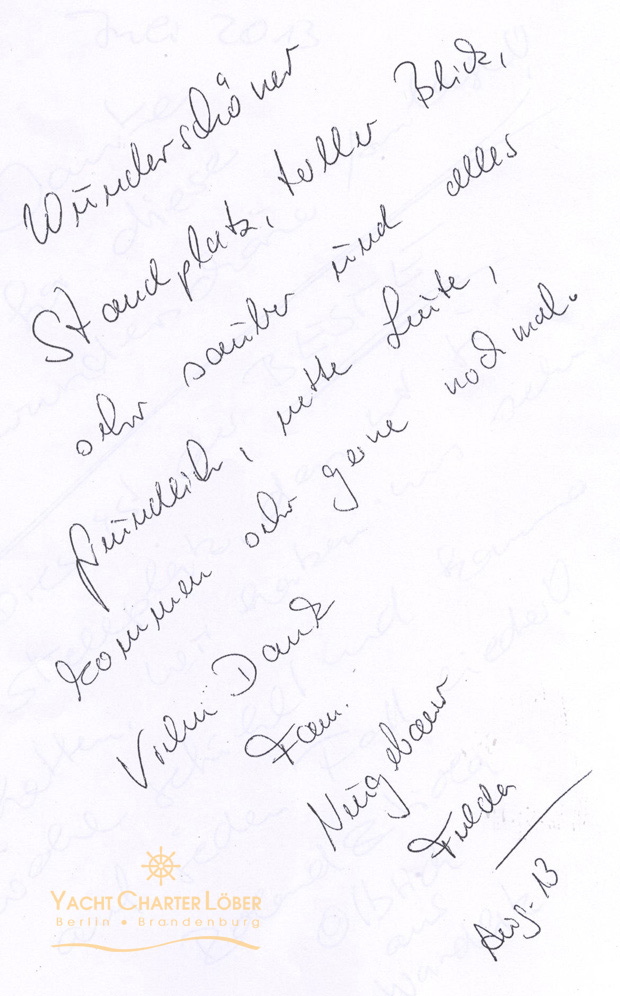 Wunderschöner
Standplatz, toller Blick,
sehr sauber und alles
freundlich, nette Leute,
kommen sehr gerne noch mal.
Vielen Dank
Fam.
Neugebauer
Fulda
Aug. 13
YACHT CHARTER LÖBER
Berlin • Brandenburg